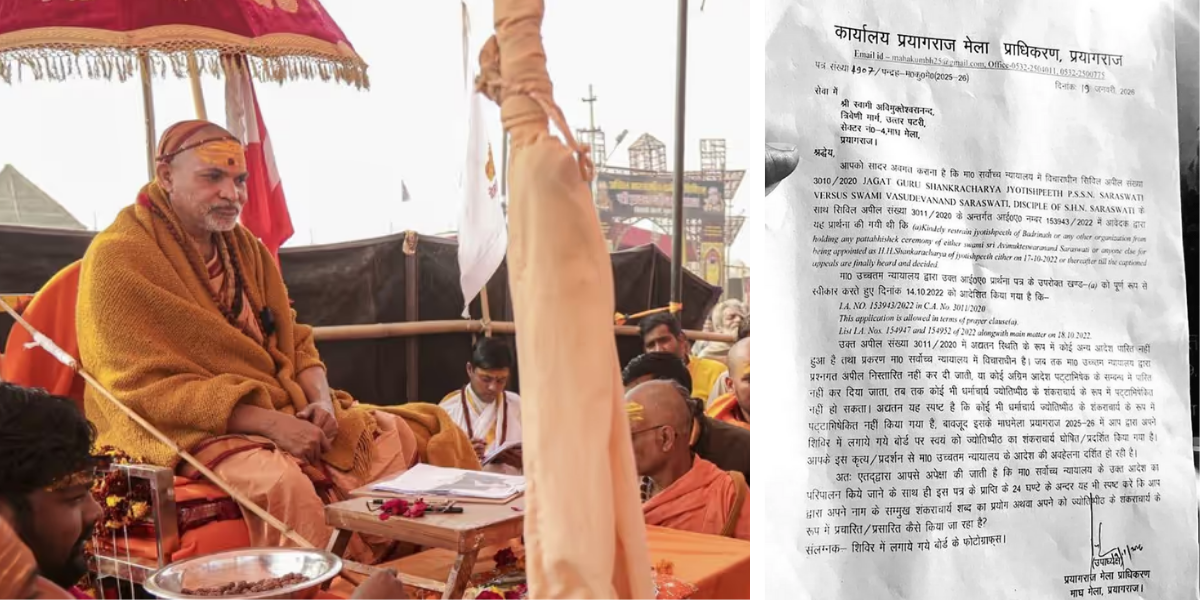 कार्यालय प्रयागराज मेला प्राधिकरण, प्रयागराज
Email id – mahakumbh25@gmail.com, Office-0532-2504011, 0532-2500775
पत्र संख्या 1907/पन्द्रह-मा0कु0मे0(2025-26)
दिनांक: 19 जनवरी, 2026
सेवा में
श्री स्वामी अविमुक्तेश्वरानन्द,
त्रिवेणी मार्ग, उत्तर पटरी,
सेक्टर नं0-4,माघ मेला,
प्रयागराज।
श्रद्धेय,
आपको सादर अवगत कराना है कि मा0 सर्वोच्च न्यायालय में विचाराधीन सिविल अपील संख्या
3010/2020 JAGAT GURU SHANKRACHARYA JYOTISHPEETH P.S.S.N. SARASWATI
VERSUS SWAMI VASUDEVANAND SARASWATI, DISCIPLE OF S.H.N. SARASWATI के
साथ सिविल अपील संख्या 3011/2020 के अन्तर्गत आई0ए0 नम्बर 153943/2022 में आवेदक द्वारा
यह प्रार्थना की गयी थी कि (a)Kindely restrain jyotishpeeth of Badrinath or any other organization from
holding any pattabhishek ceremony of either swami sri Avimukteswaranand Saraswati or anyone else for
being appointed as H.H.Shankaracharya of jyotishpeeth either on 17-10-2022 or thereafter till the captioned
appeals are finally heard and decided.
मा0 उच्चतम न्यायालय द्वारा उक्त आई0ए0 प्रार्थना पत्र के उपरोक्त खण्ड-(a) को पूर्ण रूप से
स्वीकार करते हुए दिनांक 14.10.2022 को आदेशित किया गया है कि–
I.A. NO. 153943/2022 in C.A. No. 3011/2020
This application is allowed in terms of prayer clause(a).
List I.A. Nos. 154947 and 154952 of 2022 alongwith main matter on 18.10.2022.
उक्त अपील संख्या 3011/2020 में अद्यतन स्थिति के रूप में कोई अन्य आदेश पारित नहीं
हुआ है तथा प्रकरण मा0 सर्वोच्च न्यायालय में विचाराधीन है। जब तक मा0 उच्चतम न्यायालय द्वारा
प्रश्नगत अपील निस्तारित नहीं कर दी जाती, या कोई अग्रिम आदेश पट्टाभिषेक के सम्बन्ध में पारित
नहीं कर दिया जाता, तब तक कोई भी धर्माचार्य ज्योतिष्पीठ के शंकराचार्य के रूप में पट्टाभिषेकित
नहीं हो सकता। अद्यतन यह स्पष्ट है कि कोई भी धर्माचार्य ज्योतिष्पीठ के शंकराचार्य के रूप में
पट्टाभिषेकित नहीं किया गया है, बावजूद इसके माघमेला 2025-26 में आप द्वारा अपने
शिविर में लगाये गये बोर्ड पर स्वयं को ज्योतिष्पीठ का शंकराचार्य घोषित/प्रदर्शित किया गया है।
आपके इस कृत्य/प्रदर्शन से मा0 उच्चतम न्यायालय के आदेश की अवहेलना दर्शित हो रही है।
अतः एतद्द्वारा आपसे अपेक्षा की जाती है कि मा0 सर्वोच्च न्यायालय के उक्त आदेश का
परिपालन किये जाने के साथ ही इस पत्र के प्राप्ति के 24 घण्टे के अन्दर यह भी स्पष्ट करे कि आप
द्वारा अपने नाम के सम्मुख शंकराचार्य शब्द का प्रयोग अथवा अपने को ज्योतिष्पीठ के शंकराचार्य के
रूप में प्रचारित/प्रसारित कैसे किया जा रहा है?
संलग्नक– शिविर में लगाये गये बोर्ड के फोटोग्राफ्स।
(उपाध्यक्ष)
प्रयागराज मेला प्राधिकरण
माघ मेला, प्रयागराज।